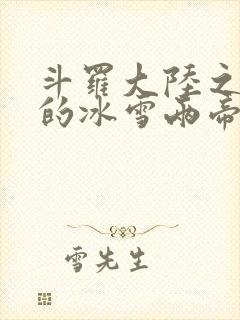 斗羅大陸之
的冰雪兩帝
雪先生